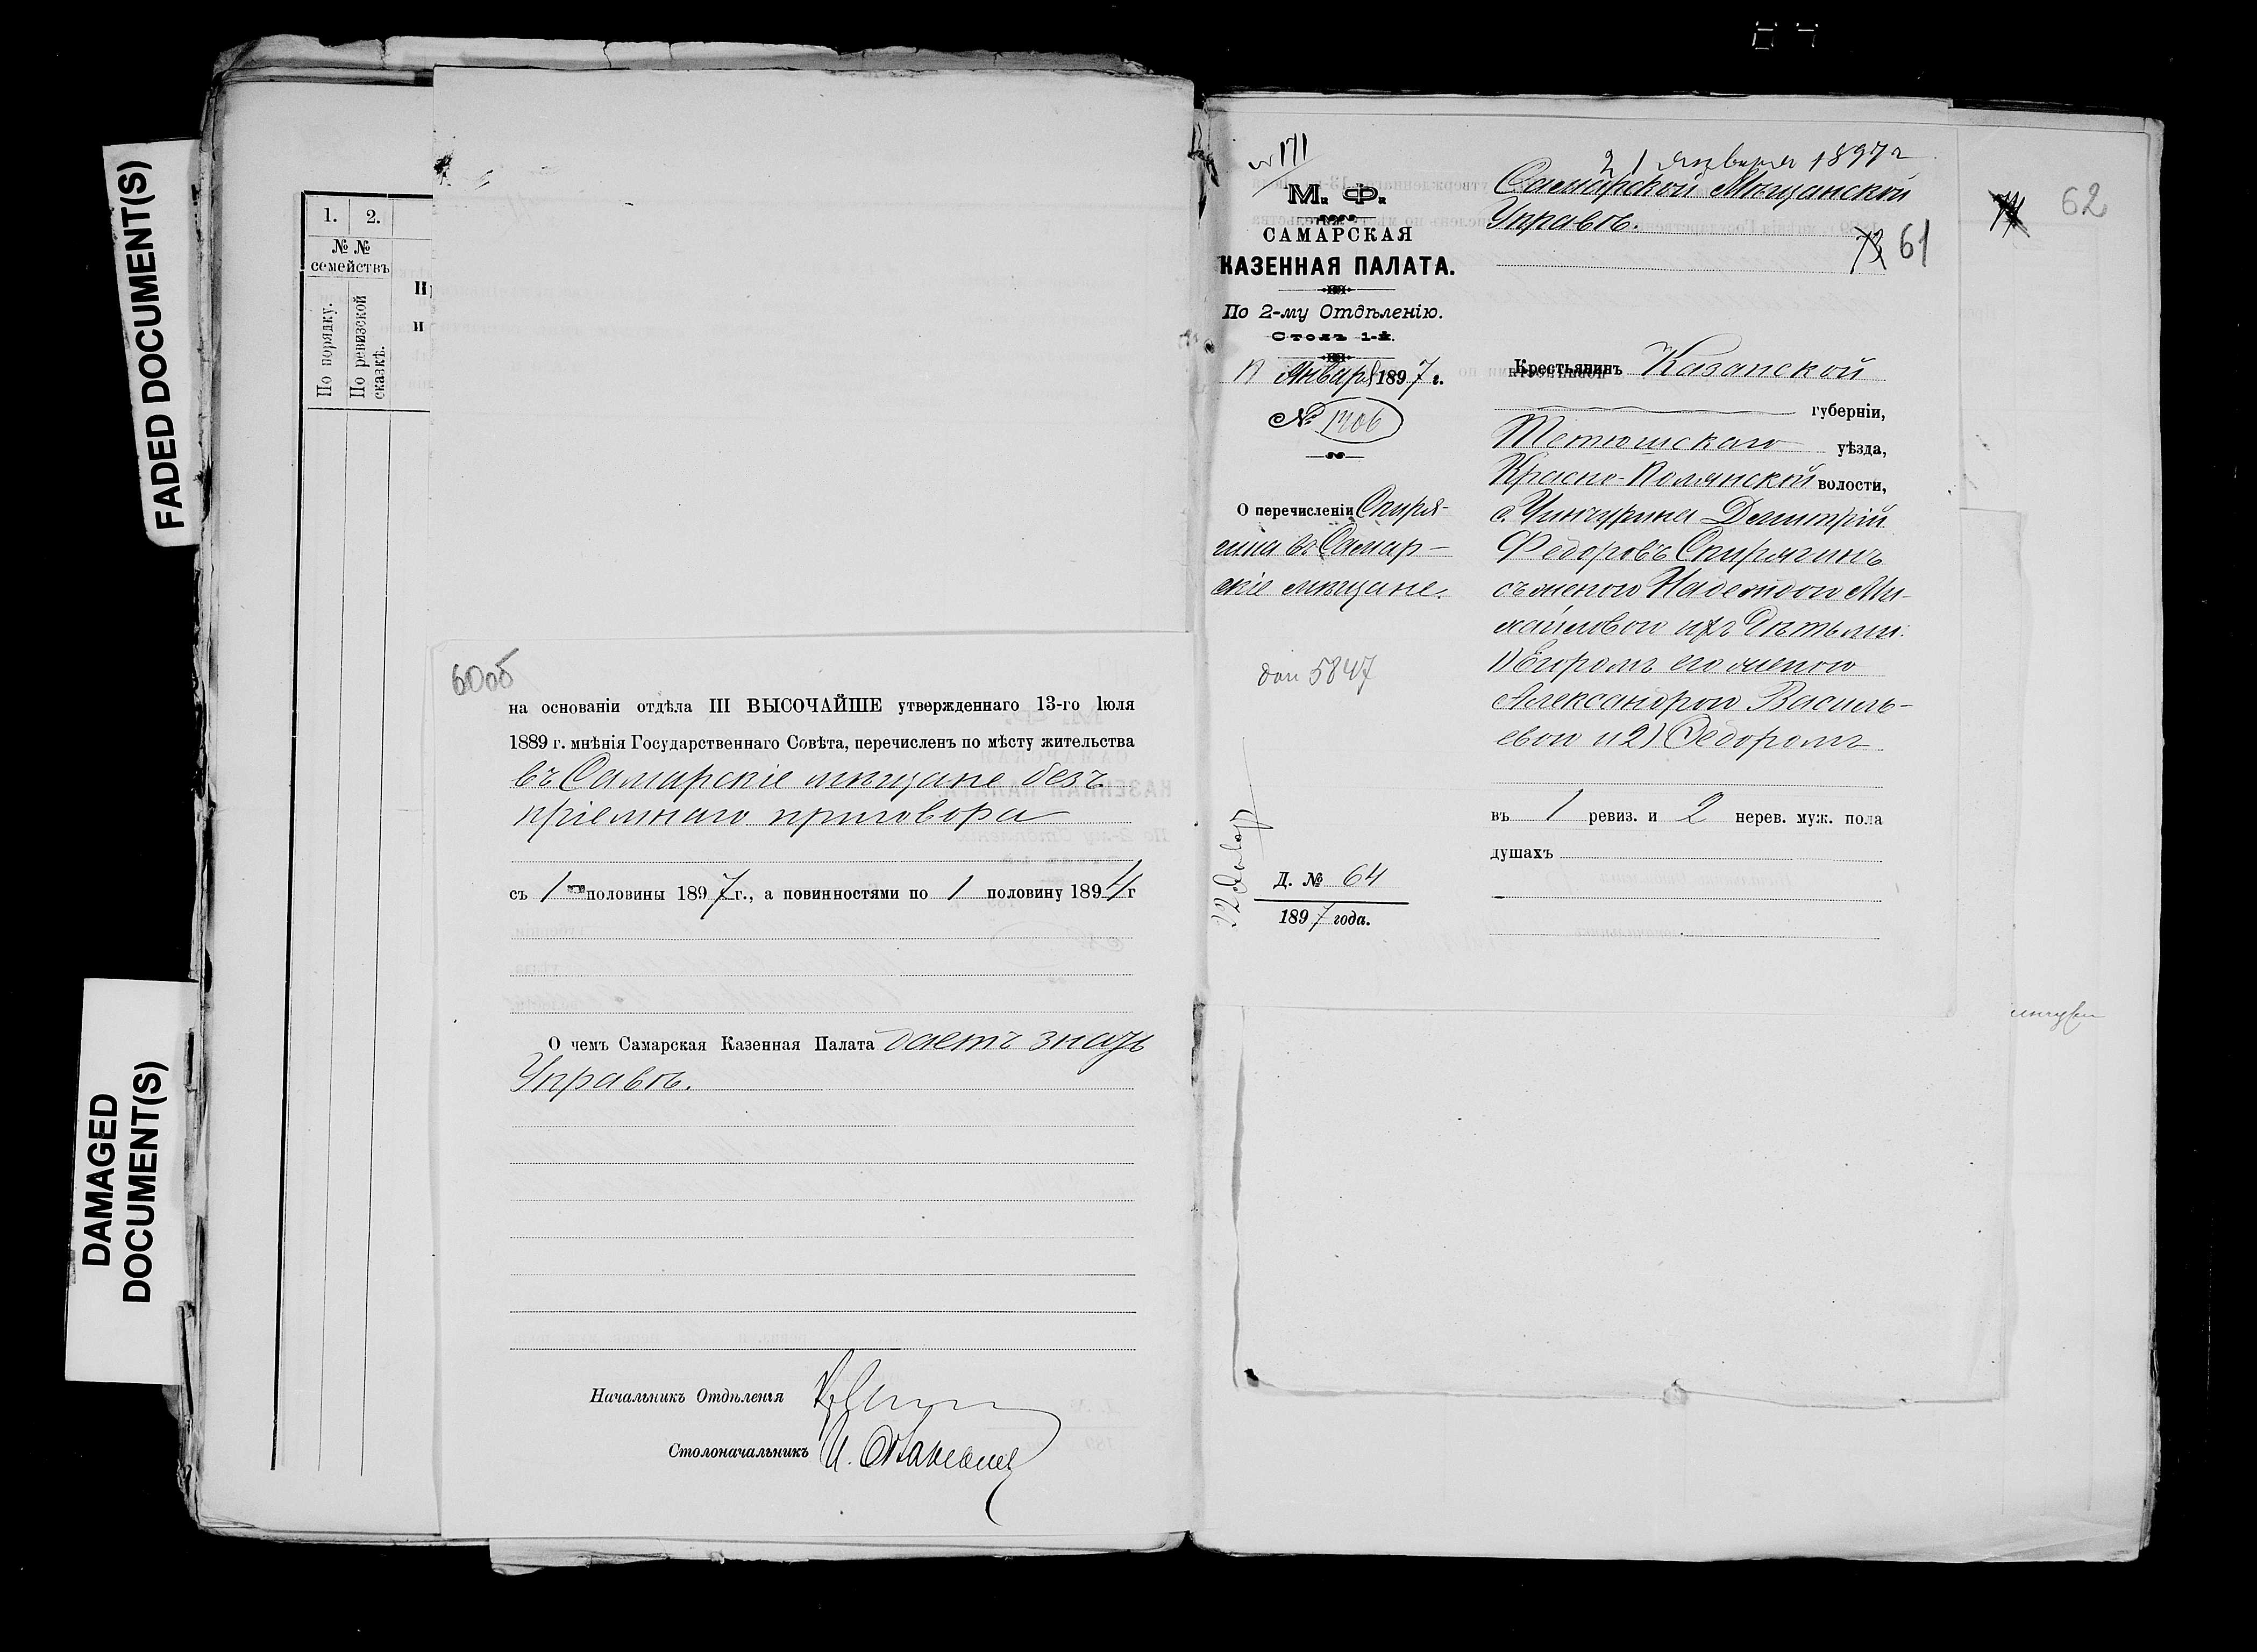 FADED DOCUMENT(S)
DAMAGED
DOCUMENT(S)
1. 2.
№ №
семействъ
По порядку.
По ревизской
сказкѣ.
60об
на основаніи отдѣла III ВЫСОЧАЙШЕ утвержденнаго 13-го Іюля
1889 г. мнѣнія Государственнаго Совѣта, перечисленъ по мѣсту жительства
въ Самарскіе мѣщане безъ
пріемнаго приговора
съ 1 половины 1897 г., а повинностями по 1 половину 1894 г
О чемъ Самарская Казенная Палата даетъ знать
Управѣ.
Начальникъ Отдѣленія
Столоначальникъ
№ 171
М. Ф.
САМАРСКАЯ
КАЗЕННАЯ ПАЛАТА.
По 2-му Отдѣленію.
Столъ 1-й.
Января 1897 г.
№ 1706
О перечисленіи Спиря-
гина въ Самар-
скіе мѣщане.
5847
Д. № 64
1897 года.
21 января 1897 г
Самарской Мѣщанской
Управѣ.
61
62
Крестьянинъ Казанской
губерніи,
Тетюшскаго уѣзда,
Красно-Полянской волости,
с. Чинчурина Димитрій
Федоровъ Спирягинъ
съ женою Надеждою Ми-
хайловою и ихъ дѣтьми:
1) Егоромъ его женою
Александрою Василь-
евою и 2) Федоромъ
въ 1 ревиз. и 2 нерев. муж. пола
душахъ